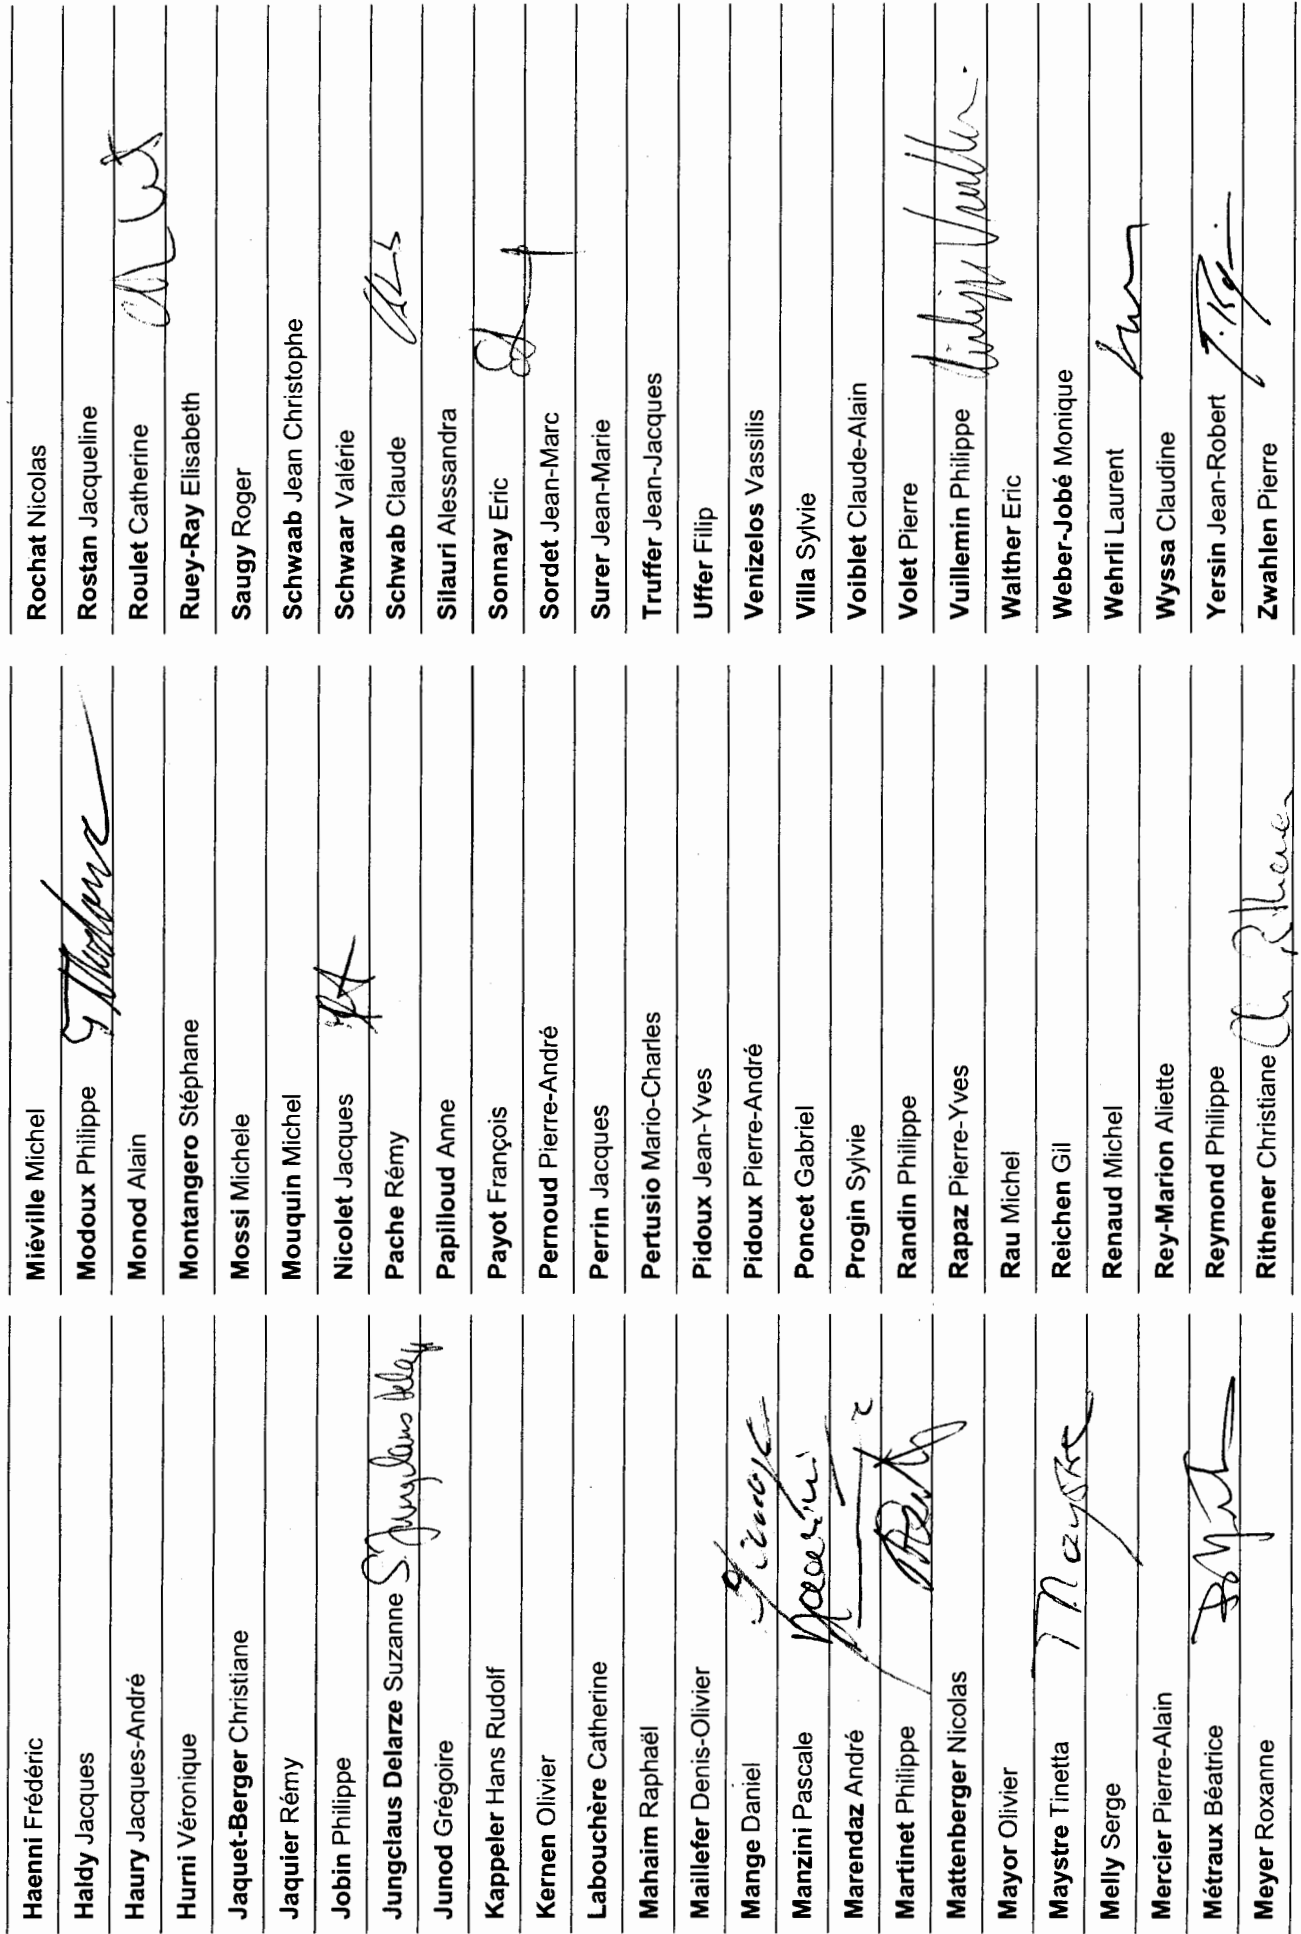 Haenni Frédéric
Haldy Jacques
Haury Jacques-André
Hurni Véronique
Jaquet-Berger Christiane
Jaquier Rémy
Jobin Philippe
Jungclaus Delarze Suzanne
Junod Grégoire
Kappeler Hans Rudolf
Kernen Olivier
Labouchère Catherine
Mahaim Raphaël
Maillefer Denis-Olivier
Mange Daniel
Manzini Pascale
Marendaz André
Martinet Philippe
Mattenberger Nicolas
Mayor Olivier
Maystre Tinetta
Melly Serge
Mercier Pierre-Alain
Métraux Béatrice
Meyer Roxanne
Miéville Michel
Modoux Philippe
Monod Alain
Montangero Stéphane
Mossi Michele
Mouquin Michel
Nicolet Jacques
Pache Rémy
Papilloud Anne
Payot François
Pernoud Pierre-André
Perrin Jacques
Pertusio Mario-Charles
Pidoux Jean-Yves
Pidoux Pierre-André
Poncet Gabriel
Progin Sylvie
Randin Philippe
Rapaz Pierre-Yves
Rau Michel
Reichen Gil
Renaud Michel
Rey-Marion Aliette
Reymond Philippe
Rithener Christiane
Rochat Nicolas
Rostan Jacqueline
Roulet Catherine
Ruey-Ray Elisabeth
Saugy Roger
Schwaab Jean Christophe
Schwaar Valérie
Schwab Claude
Silauri Alessandra
Sonnay Eric
Sordet Jean-Marc
Surer Jean-Marie
Truffer Jean-Jacques
Uffer Filip
Venizelos Vassilis
Villa Sylvie
Voiblet Claude-Alain
Volet Pierre
Vuillemin Philippe
Walther Eric
Weber-Jobé Monique
Wehrli Laurent
Wyssa Claudine
Yersin Jean-Robert
Zwahlen Pierre